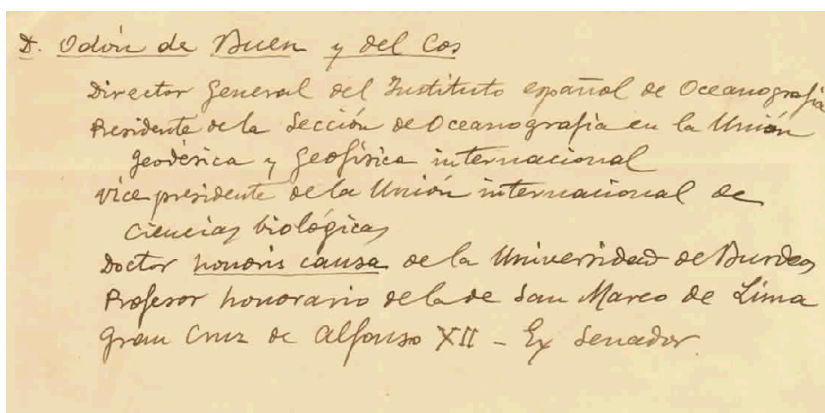 D. Odón de Buen y del Cos
Director General del Instituto español de Oceanografía
Presidente de la Sección de Oceanografía en la Unión
Geodésica y Geofísica internacional
Vice presidente de la Unión internacional de
Ciencias biológicas
Doctor honoris causa de la Universidad de Burdeos
Profesor honorario de la de San Marco de Lima
Gran Cruz de Alfonso XII - Ex Senador